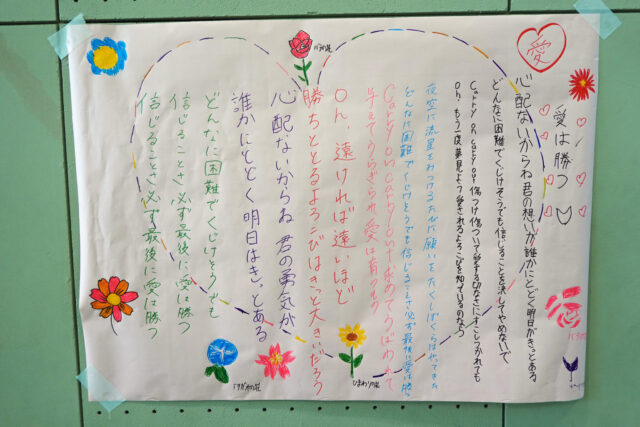 愛
愛は勝つ
心配ないからね君の想いが誰かにとどく明日がきっとある
どんなに困難でくじけそうでも信じることを決してやめないで
Carry on carry on 傷つけ傷ついて愛する切なさにすこしつかれても
Oh, もう一度夢見よう愛されるよろこびを知っているのなら
夜空に流星をみつけるたびに願いをたくしぼくらはやってきた
どんなに困難でくじけそうでも信じることさ必ず最後に愛は勝つ
Carry on carry on 求めてうばわれて
与えてうらぎられ愛は育つもの
Oh, 遠ければ遠いほど
勝ちとるよろこびはきっと大きいだろう
心配ないからね 君の勇気が
誰かにとどく明日はきっとある
どんなに困難でくじけそうでも
信じることさ必ず最後に愛は勝つ
信じることさ必ず最後に愛は勝つ
バラの花
アサガオの花
ひまわりの花